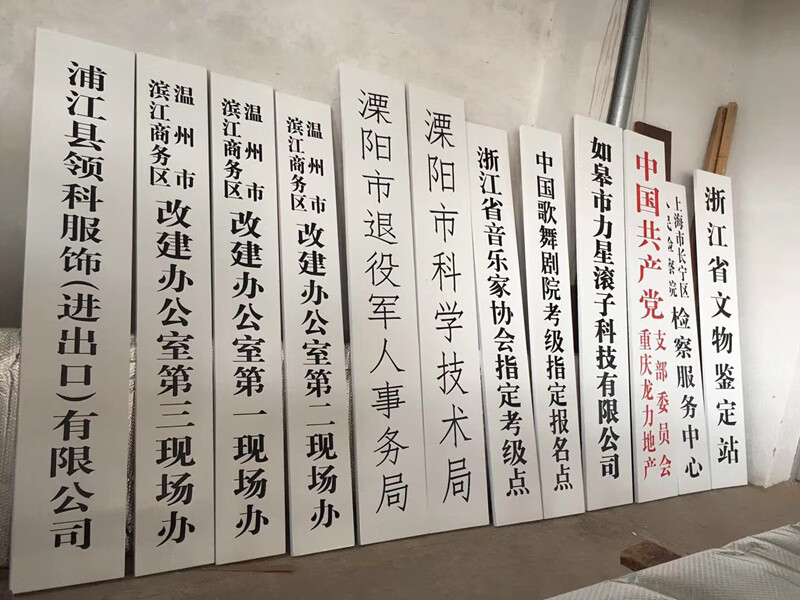 浦江县领科服饰(进出口)有限公司
温州市
滨江商务区
改建办公室第三现场办
温州市
滨江商务区
改建办公室第一现场办
温州市
滨江商务区
改建办公室第二现场办
溧阳市退役军人事务局
溧阳市科学技术局
浙江省音乐家协会指定考级点
中国歌舞剧院考级指定报名点
如皋市力星滚子科技有限公司
中国共产党
重庆龙力地产
支部委员会
上海市长宁区
人民检察院
检察服务中心
浙江省文物鉴定站